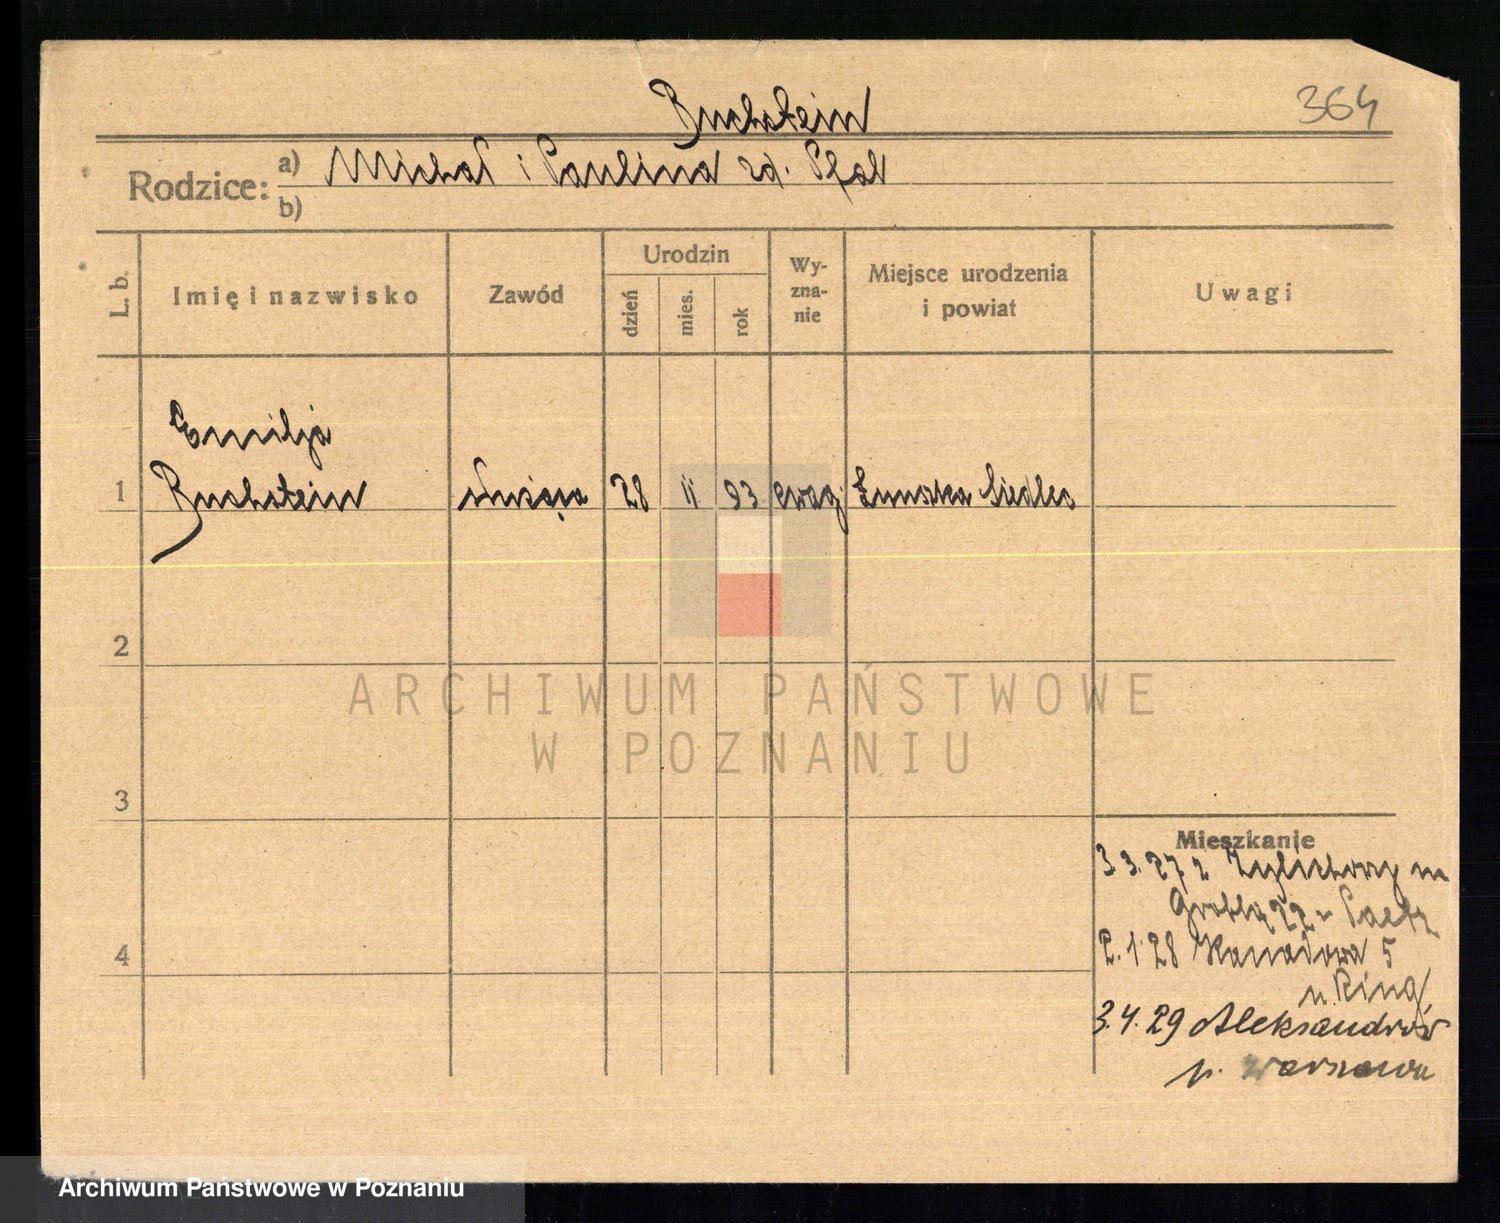 Buchstein
364
Rodzice: a) Michał i Paulina zd. Pfal
b)
L. b.
Imię i nazwisko
Zawód
Urodzin
dzień
mies.
rok
Wy-
zna-
nie
Miejsce urodzenia
i powiat
Uwagi
Emilja
1 Buchstein służąca 28 11 93 ewag Siedlec
2
3
4
Mieszkanie
3 3. 27 z
Grobla 22 u Paetz
2. 1 28 Kanałowa 5
u. Ring
3. 4. 29 Aleksandrów
p. Warszawa
ARCHIWUM PAŃSTWOWE
W POZNANIU
Archiwum Państwowe w Poznaniu